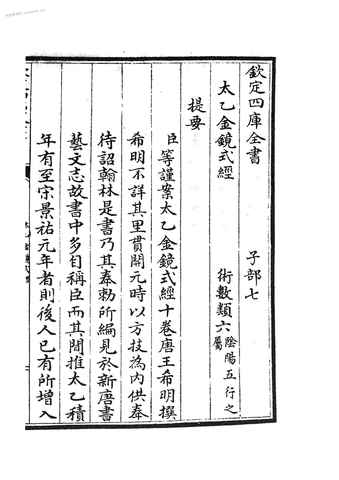 欽定四庫全書 子部七
太乙金鏡式經 術數類六陰陽五行之屬
提要
臣等謹案太乙金鏡式經十卷唐王希明撰
希明不詳其里貫開元時以方技為内供奉
待詔翰林是書乃其奉勅所編見於新唐書
藝文志故書中多自稱臣而其間推太乙積
年有至宋景祐元年者則後人已有所增入